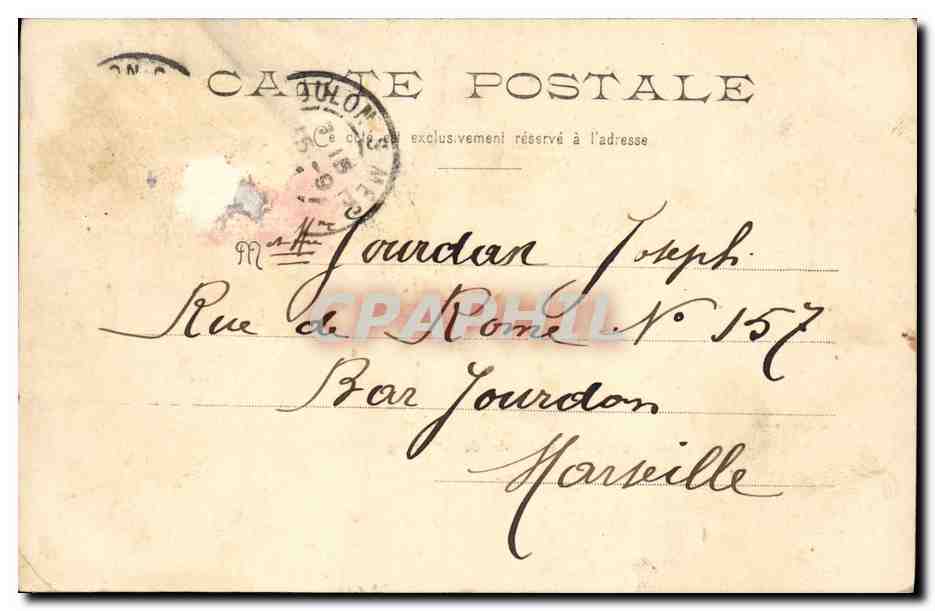 CARTE POSTALE
OULON-S-MER
Ce côté est exclusivement réservé à l'adresse
Mr Mme Jourdan Joseph
Rue de Rome No 157
CPAPHIL
Bar Jourdan
Marseille